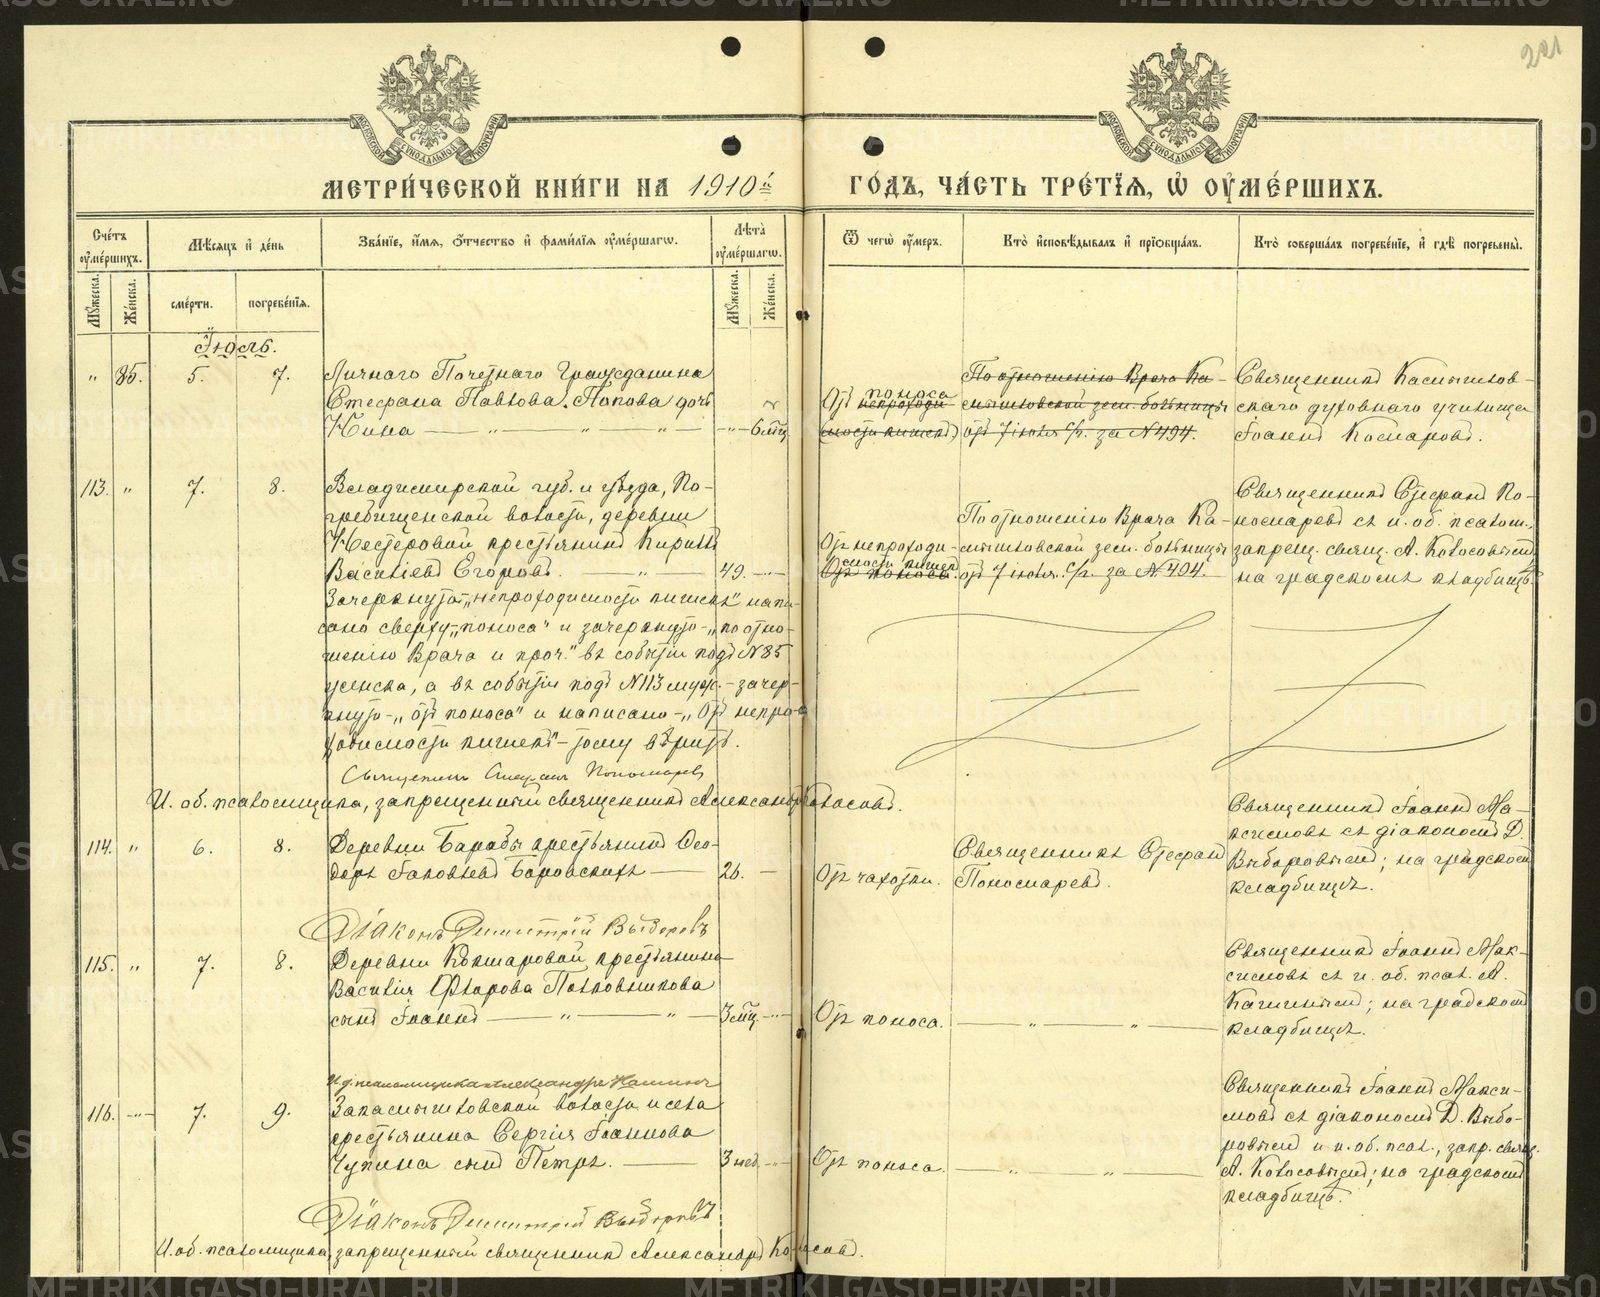 221
МЕТРИ́ЧЕСКОЙ КНИ́ГИ НА 1910й
ГО́ДЪ, ЧА́СТЬ ТРЕ́ТЇѦ, Ѡ҆ ОУ҆МЕ́РШИХЪ.
МОСКОВСКОЙ СѴНОДАЛЬНОЙ ТИПОГРАФІИ
МОСКОВСКОЙ СѴНОДАЛЬНОЙ ТИПОГРАФІИ
Сче́тъ оу҆ме́ршихъ.
Мѣ́сѧцъ и҆ де́нь
Зва́нїе, и҆́мѧ, ѻ҆́тчество и҆ фами́лїѧ оу҆ме́ршагѡ.
Лѣ́та оу҆ме́ршагѡ.
Ѿ чегѡ̀ оу҆́меръ.
Кто̀ и҆сповѣ́дывалъ и҆ прїѻбща́лъ.
Кто̀ соверша́лъ погребе́нїе, и҆ гдѣ̀ погребены̀.
Мꙋ́жеска.
Же́нска.
сме́рти.
погребе́нїѧ.
Мꙋ́жеска.
Же́нска.
Іюль.
" 85. 5. 7.
Личнаго Почетнаго Гражданина
Стефана Павлова Попова дочь
Нина — " — " — " — " 6 мѣс.
Отъ поноса
непроходи-
мости кишекъ
По отношенію Врача Ка-
мышловской зем. больницы
отъ 7 іюля с/г. за №494.
Священникъ Камышлов-
скаго духовнаго училища
Іоаннъ Комаровъ.
113. " 7. 8.
Владимирской губ. и уѣзда, По-
гребищенской волости, деревни
Нестеровой крестьянинъ Кириллъ
Василіевъ Егоровъ. — " — 49.
Отъ непроходи-
мости кишекъ
Отъ поноса.
По отношенію Врача Ка-
мышловской зем. больницы
отъ 7 іюля с/г. за №494.
Священникъ Стефанъ По-
номаревъ съ и. об. псалом.,
запрещ. свящ. А. Колосовымъ
на градскомъ кладбищѣ.
Зачеркнуто-„непроходимости кишекъ" напи-
сано сверху-„поноса" и зачеркнуто-„по отно-
шенію Врача и проч." въ событіи подъ №85
женска, а въ событіи подъ №113 муж.-зачер-
кнуто-„отъ поноса" и написано-„Отъ непро-
ходимости кишекъ"- тому вѣрить.
Священникъ Стефанъ Пономаревъ
И. об. псаломщика, запрещенный священникъ Александръ Колосовъ.
114. " 6. 8.
Деревни Барабы крестьянинъ Ѳео-
доръ Іаковлевъ Боровскихъ — 26. —
Отъ чахотки.
Священникъ Стефанъ
Пономаревъ.
Священникъ Іоаннъ Ма-
ксимовъ съ діакономъ Д.
Выборовымъ; на градскомъ
кладбищѣ.
Діаконъ Димитрій Выборовъ
115. " 7. 8.
Деревни Кокшаровой крестьянина
Василія Ѳедорова Полковникова
сынъ Іоаннъ — " — " — 3 мѣс.
Отъ поноса.
— " — " —
Священникъ Іоаннъ Мак-
симовъ съ и. об. псал. А.
Кашинымъ; на градскомъ
кладбищѣ.
И д. псаломщика Александръ Кашинъ
116. — " — 7. 9.
Закамышловской волости и села
крестьянина Сергія Іоаннова
Чупина сынъ Петръ. — 3 нед.
Отъ поноса.
— " — " —
Священникъ Іоаннъ Макси-
мовъ съ діакономъ Д. Выбо-
ровымъ и и. об. псал., запр. свящ.
А. Колосовымъ; на градскомъ
кладбищѣ.
Діаконъ Димитрій Выборовъ
И. об. псаломщика, запрещенный священникъ Александръ Колосовъ.
METRIKI.GASO-URAL.RU